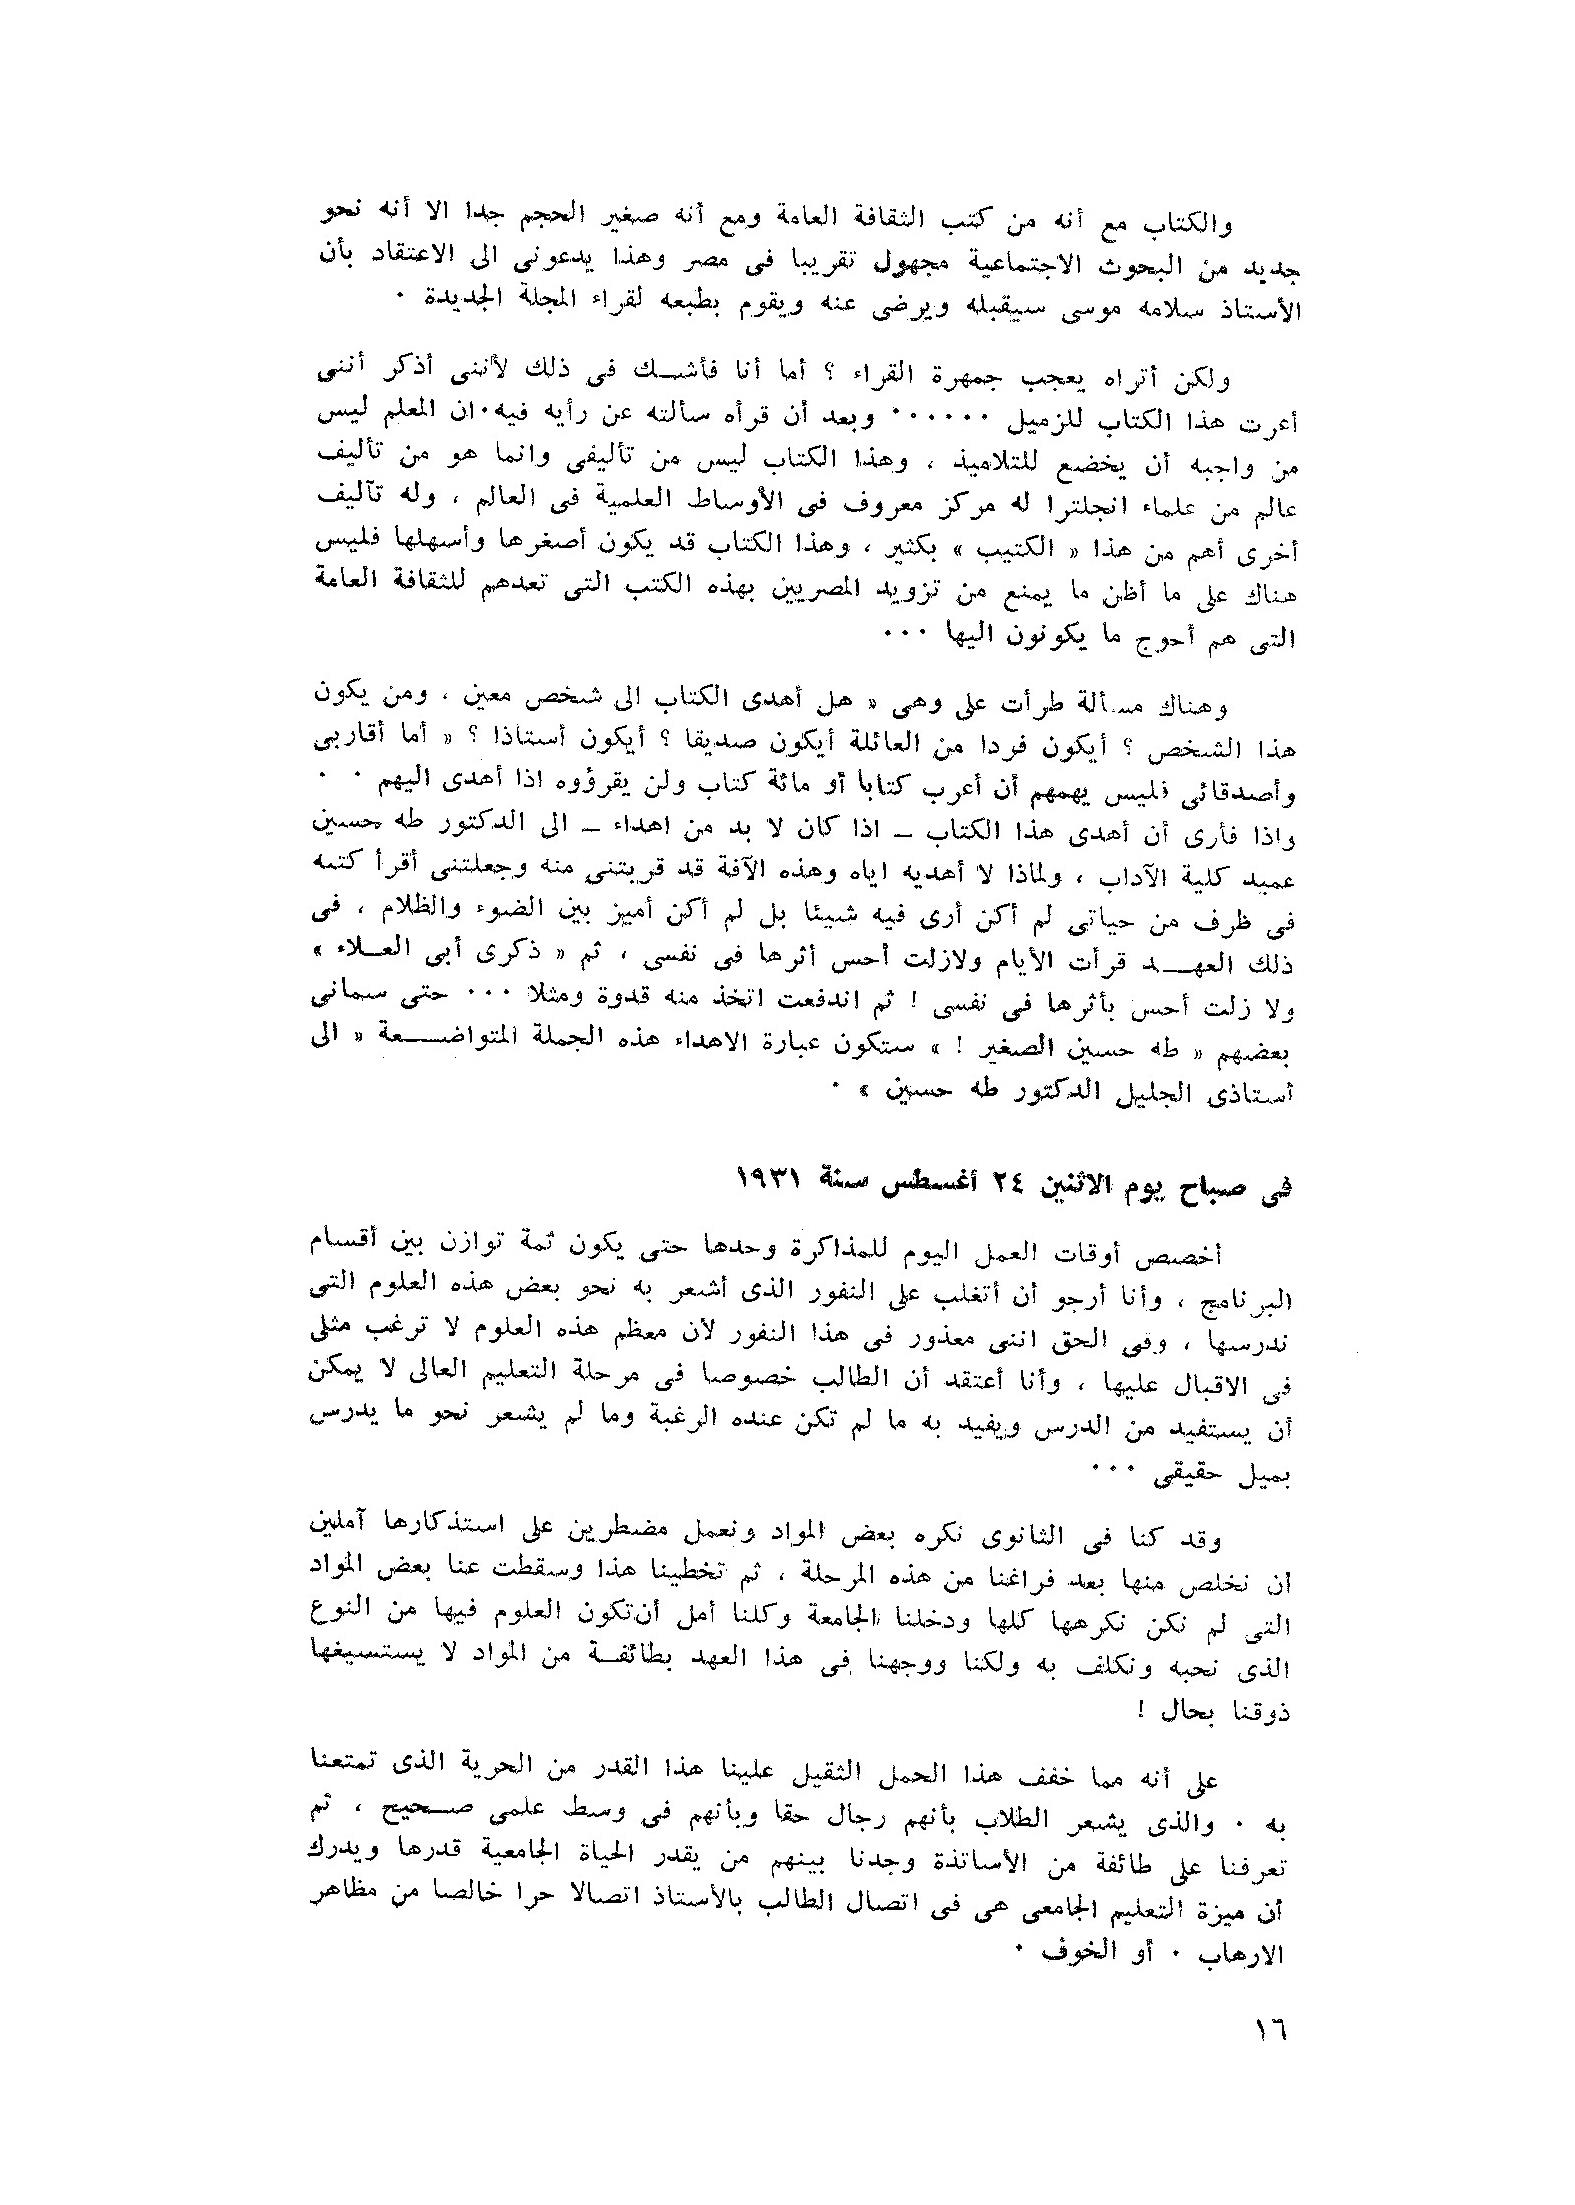 والكتاب مع أنه من كتب الثقافة العامة ومع أنه صغير الحجم جدا الا أنه نحو
جديد من البحوث الاجتماعية مجهول تقريبا فى مصر وهذا يدعونى الى الاعتقاد بأن
الأستاذ سلامه موسى سيقبله ويرضى عنه ويقوم بطبعه لقراء المجلة الجديدة ٠
ولكن أتراه يعجب جمهرة القراء ؟ أما أنا فأشك فى ذلك لأننى أذكر أننى
أعرت هذا الكتاب للزميل ٠٠٠٠٠٠ وبعد أن قرأه سألته عن رأيه فيه٠ان المعلم ليس
من واجبه أن يخضع للتلاميذ ، وهذا الكتاب ليس من تأليفى وانما هو من تأليف
عالم من علماء انجلترا له مركز معروف فى الأوساط العلمية فى العالم ، وله تآليف
أخرى أهم من هذا « الكتيب » بكثير ، وهذا الكتاب قد يكون أصغرها وأسهلها فليس
هناك على ما أظن ما يمنع من تزويد المصريين بهذه الكتب التى تعدهم للثقافة العامة
التى هم أحوج ما يكونون اليها ٠٠٠
وهناك مسألة طرأت على وهى « هل أهدى الكتاب الى شخص معين ، ومن يكون
هذا الشخص ؟ أيكون فردا من العائلة أيكون صديقا ؟ أيكون أستاذا ؟ « أما أقاربى
وأصدقائى فليس يهمهم أن أعرب كتابا أو مائة كتاب ولن يقرؤوه اذا أهدى اليهم ٠ ٠
واذا فأرى أن أهدى هذا الكتاب – اذا كان لا بد من اهداء – الى الدكتور طه حسين
عميد كلية الآداب ، ولماذا لا أهديه اياه وهذه الآفة قد قربتنى منه وجعلتنى أقرأ كتبه
فى ظرف من حياتى لم أكن أرى فيه شيئا بل لم أكن أميز بين الضوء والظلام ، فى
ذلك العهد قرأت الأيام ولازلت أحس أثرها فى نفسى ، ثم « ذكرى أبى العلاء »
ولا زلت أحس بأثرها فى نفسى ! ثم اندفعت اتخذ منه قدوة ومثلا ٠٠٠ حتى سمانى
بعضهم « طه حسين الصغير ! » ستكون عبارة الاهداء هذه الجملة المتواضعة « الى
أستاذى الجليل الدكتور طه حسين » ٠
فى صباح يوم الاثنين ٢٤ أغسطس سنة ١٩٣١
أخصص أوقات العمل اليوم للمذاكرة وحدها حتى يكون ثمة توازن بين أقسام
البرنامج ، وأنا أرجو أن أتغلب على النفور الذى أشعر به نحو بعض هذه العلوم التى
ندرسها ، وفى الحق اننى معذور فى هذا النفور لأن معظم هذه العلوم لا ترغب مثلى
فى الاقبال عليها ، وأنا أعتقد أن الطالب خصوصا فى مرحلة التعليم العالى لا يمكن
أن يستفيد من الدرس ويفيد به ما لم تكن عنده الرغبة وما لم يشعر نحو ما يدرس
بميل حقيقى ٠٠٠
وقد كنا فى الثانوى نكره بعض المواد ونعمل مضطرين على استذكارها آملين
أن نخلص منها بعد فراغنا من هذه المرحلة ، ثم تخطينا هذا وسقطت عنا بعض المواد
التى لم نكن نكرهها كلها ودخلنا الجامعة وكلنا أمل أن تكون العلوم فيها من النوع
الذى نحبه ونكلف به ولكنا ووجهنا فى هذا العهد بطائفة من المواد لا يستسيغها
ذوقنا بحال !
على أنه مما خفف هذا الحمل الثقيل علينا هذا القدر من الحرية الذى تمتعنا
به ٠ والذى يشعر الطلاب بأنهم رجال حقا وبأنهم فى وسط علمى صحيح ، ثم
تعرفنا على طائفة من الأساتذة وجدنا بينهم من يقدر الحياة الجامعية قدرها ويدرك
أن ميزة التعليم الجامعى هى فى اتصال الطالب بالأستاذ اتصالا حرا خالصا من مظاهر
الارهاب ٠ أو الخوف ٠
١٦